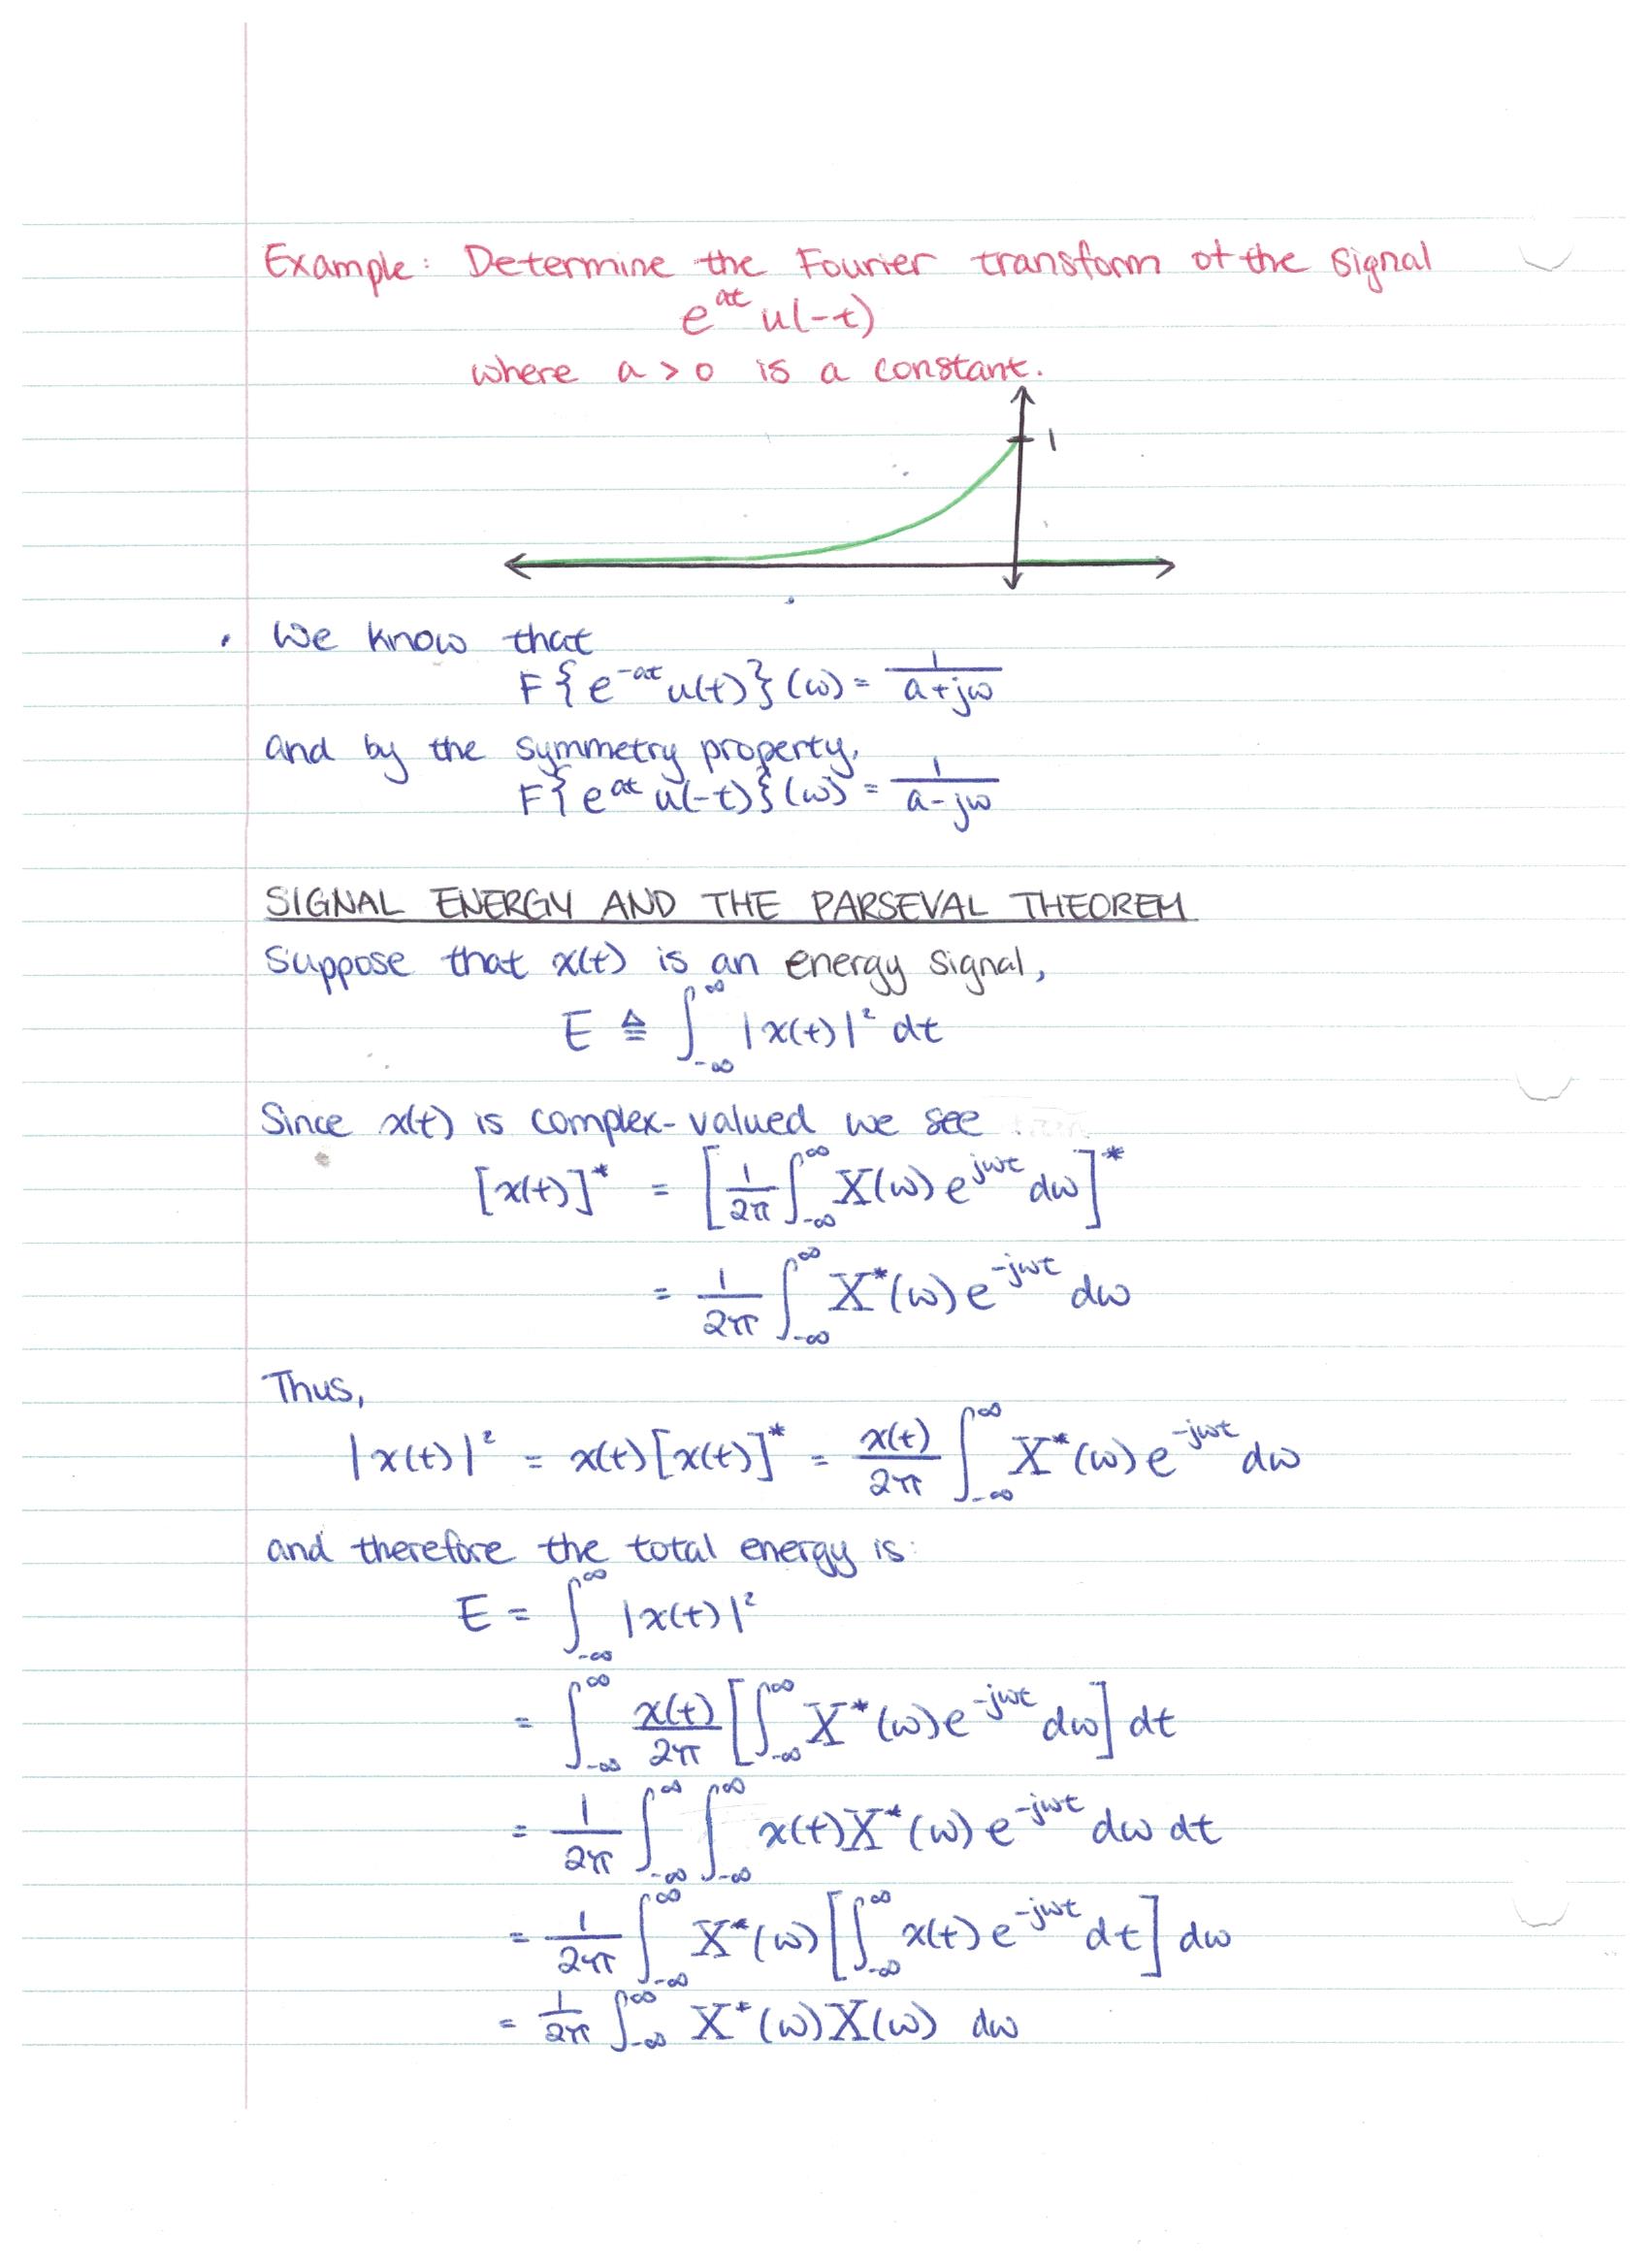 Example: Determine the Fourier transform of the signal
e^{at} u(-t)
where a > 0 is a constant.
1
We know that
F{e^{-at} u(t)}(ω) = \frac{1}{a+jω}
and by the symmetry property,
F{e^{at} u(-t)}(ω) = \frac{1}{a-jω}
SIGNAL ENERGY AND THE PARSEVAL THEOREM
Suppose that x(t) is an energy signal,
E ≜ ∫_{-∞}^{∞} |x(t)|² dt
Since x(t) is complex-valued we see
[x(t)]^* = [\frac{1}{2π} ∫_{-∞}^{∞} X(ω) e^{jωt} dω]^*
= \frac{1}{2π} ∫_{-∞}^{∞} X^*(ω) e^{-jωt} dω
Thus,
|x(t)|² = x(t)[x(t)]^* = \frac{x(t)}{2π} ∫_{-∞}^{∞} X^*(ω) e^{-jωt} dω
and therefore the total energy is:
E = ∫_{-∞}^{∞} |x(t)|²
= ∫_{-∞}^{∞} \frac{x(t)}{2π} [∫_{-∞}^{∞} X^*(ω) e^{-jωt} dω] dt
= \frac{1}{2π} ∫_{-∞}^{∞} ∫_{-∞}^{∞} x(t) X^*(ω) e^{-jωt} dω dt
= \frac{1}{2π} ∫_{-∞}^{∞} X^*(ω) [∫_{-∞}^{∞} x(t) e^{-jωt} dt] dω
= \frac{1}{2π} ∫_{-∞}^{∞} X^*(ω) X(ω) dω